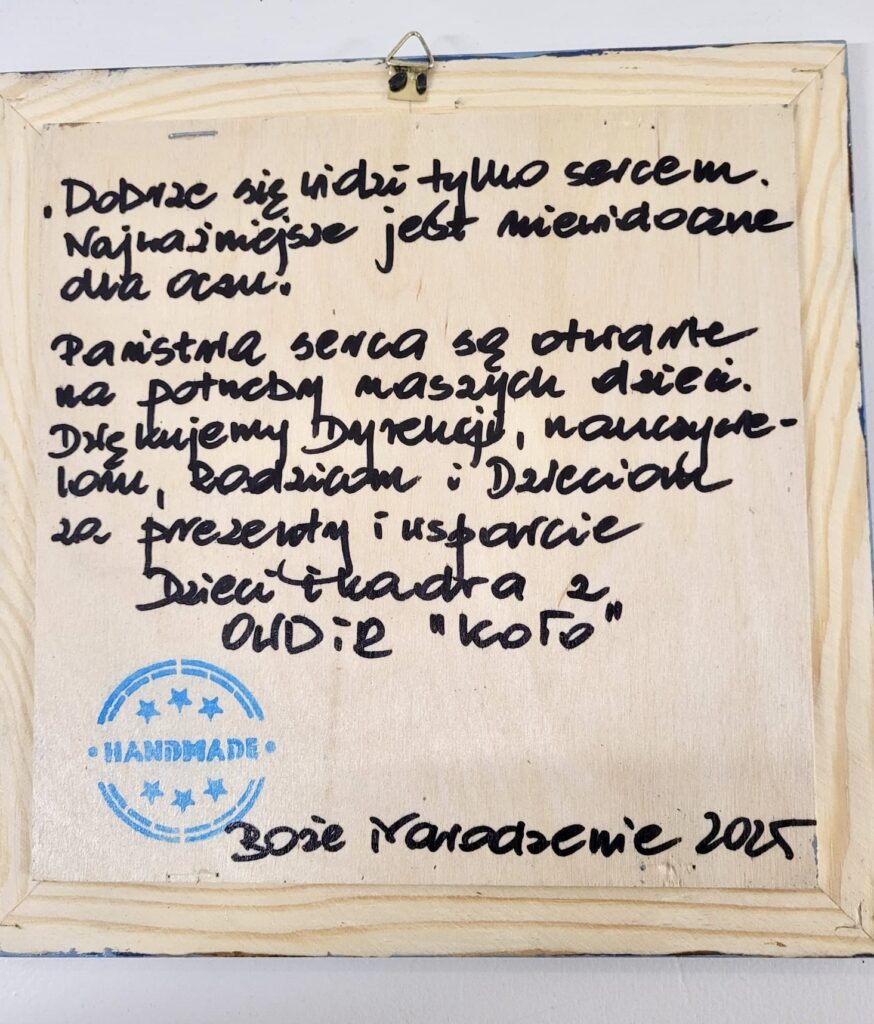 „Dobrze się widzi tylko sercem.
Najważniejsze jest niewidoczne
dla oczu.
Państwa serca są otwarte
na potrzeby naszych dzieci.
Dziękujemy Dyrekcji, nauczycie-
lom, Rodzicom i Dzieciom
za prezenty i wsparcie
Dzieci i kadra z
OWDiR "Koło"
HANDMADE
Boże Narodzenie 2025